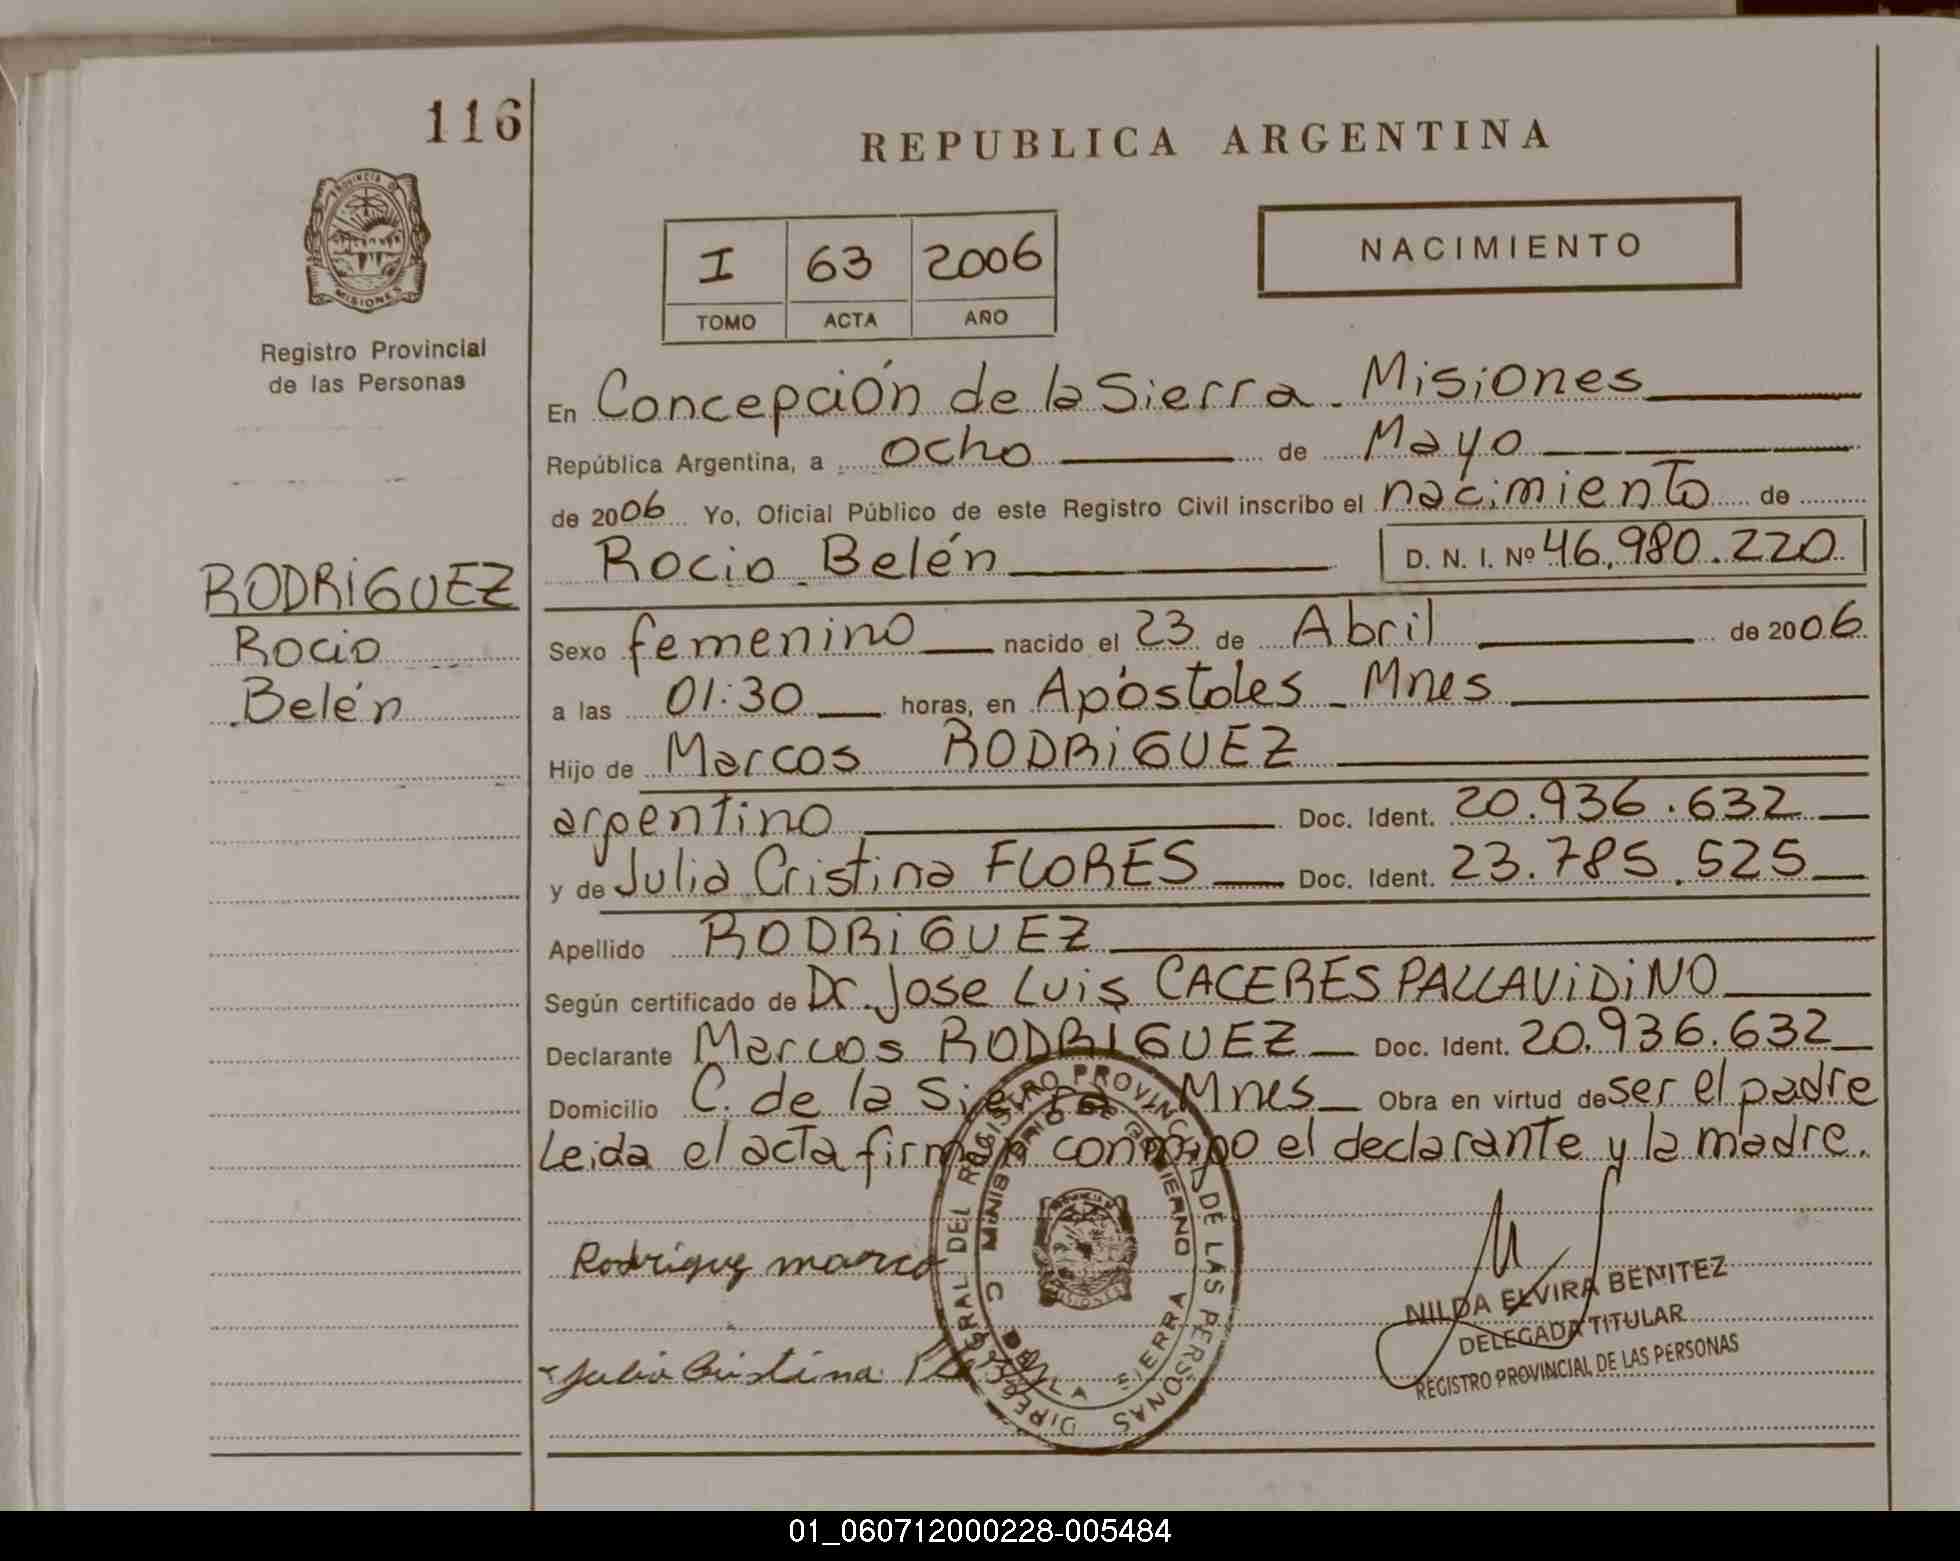 116
REPUBLICA ARGENTINA
PROVINCIA DE
MISIONES
Registro Provincial
de las Personas
I 63 2006
TOMO ACTA AÑO
NACIMIENTO
En Concepción de la Sierra - Misiones
República Argentina, a ocho de Mayo
de 2006 Yo, Oficial Público de este Registro Civil inscribo el nacimiento de
Rocio Belén D. N. I. Nº 46.980.220
RODRIGUEZ
Rocio
Belén
Sexo femenino nacido el 23 de Abril de 2006
a las 01:30 horas, en Apóstoles - Mnes
Hijo de Marcos RODRIGUEZ
argentino Doc. Ident. 20.936.632
y de Julia Cristina FLORES Doc. Ident. 23.785.525
Apellido RODRIGUEZ
Según certificado de Dr. Jose Luis CACERES PALLAVIDINO
Declarante Marcos RODRIGUEZ Doc. Ident. 20.936.632
Domicilio C. de la Sierra - Mnes Obra en virtud de ser el padre
Leida el acta firman conmigo el declarante y la madre.
DIRECCION GENERAL DEL REGISTRO PROVINCIAL DE LAS PERSONAS
MINISTERIO DE GOBIERNO
C. DE LA SIERRA
Rodriguez marco
Julia Cristina
NILDA ELVIRA BENITEZ
DELEGADA TITULAR
REGISTRO PROVINCIAL DE LAS PERSONAS
01_060712000228-005484